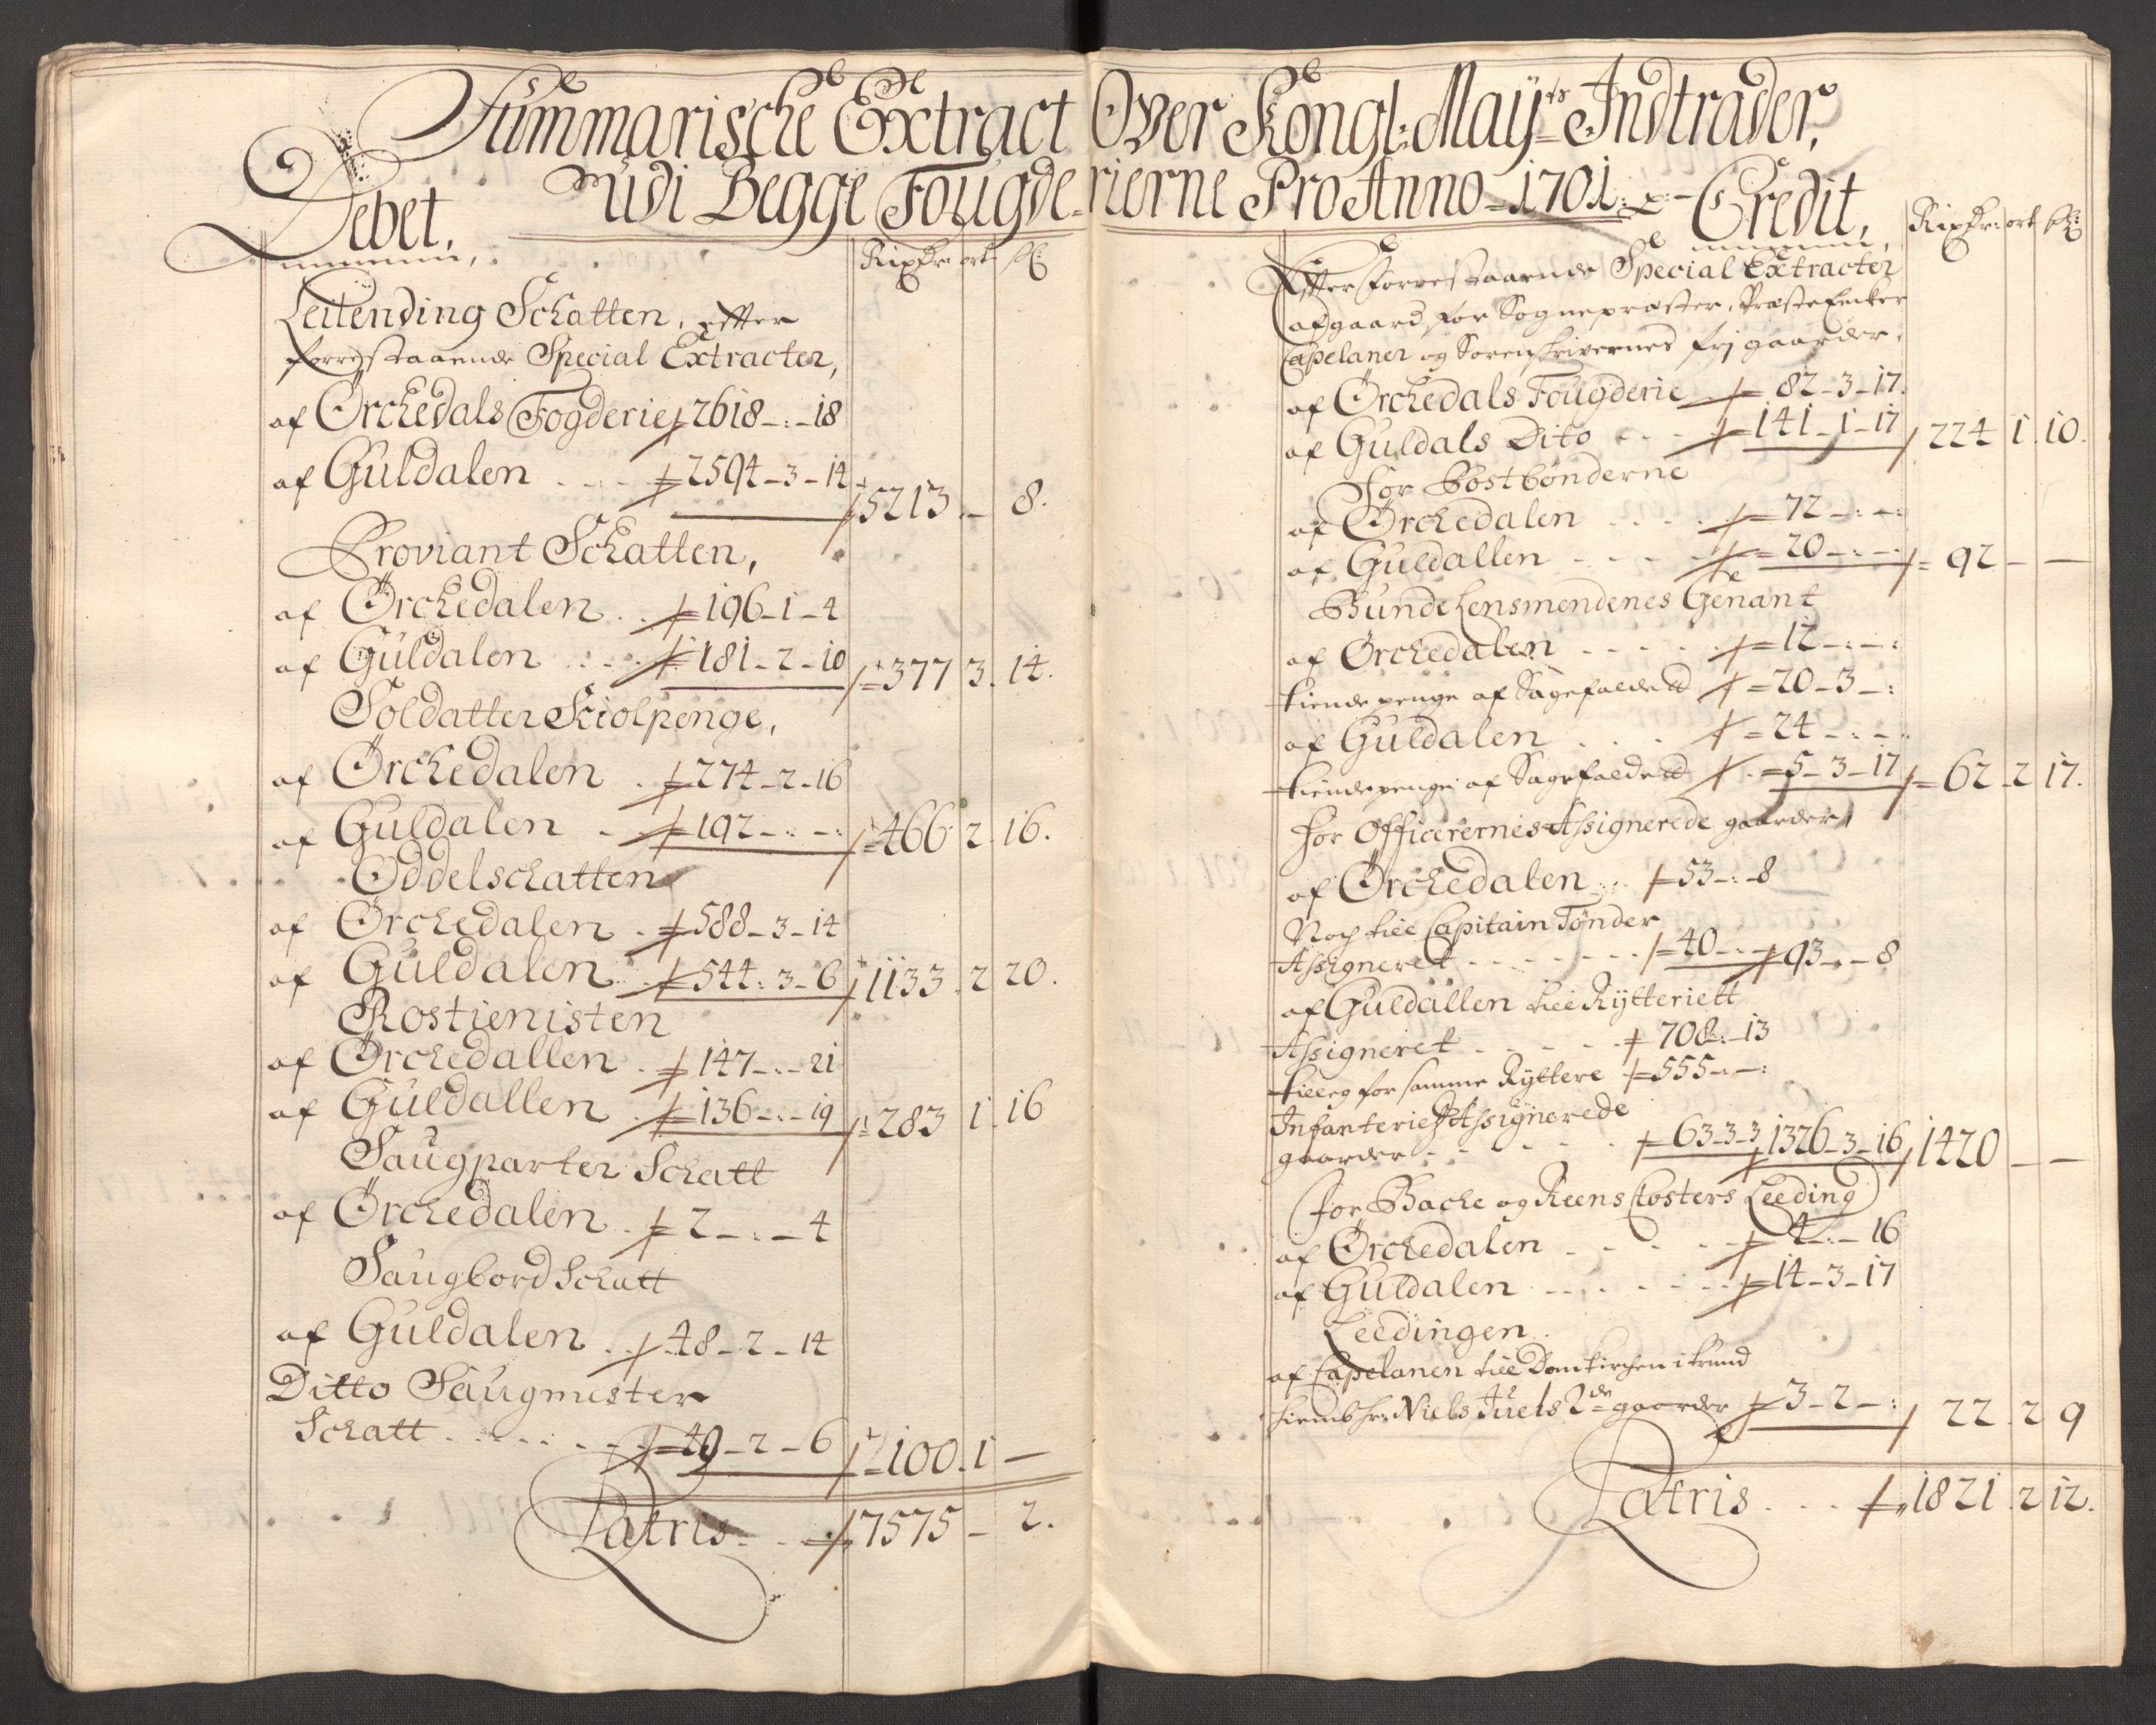 Summarische Extract Over Kongl: May:ts Indtrader,
udi Begge Fougderierne Pro Anno 1701
Debet,
Rixdr: ort ß:
Leilending Schatten, efter
forrestaaende Special Extracter,
af Örchedals Fogderie 2618 - : - 18
af Guldalen . . . 2594 - 3 - 14 5213 - 8.
Proviant Schatten,
af Örchedalen . . 196 - 1 - 4
af Guldalen . . . 181 - 2 - 10 377 3. 14.
Soldatter Kiolpenge,
af Örchedalen . 274 - 2 - 16
af Guldalen - 192 - : - : 466 2. 16.
Oddelschatten
af Örchedalen . 588 - 3 - 14
af Guldalen . 544 : 3 - 6 1133 . 2 20.
Rostienisten
af Örchedallen . 147 - : - 21
af Guldallen . 136 - : - 19 283 1. 16
Saugparter Schatt
af Örchedalen . 2 - : - 4
Saugbord Schatt
af Guldalen . . 48 - 2 - 14
Ditto Saugmester
Schatt . . . . . 49 - 2 - 6 100 . 1 -
Latris . . 7575 - 2.
Credit,
Rixdr: ort ß:
Efter forrestaaende Special Extracter
afgaard for Sognepræster, Præste Encker
Capelaner og Sorenskrivernes frj gaarder.
af Örchedals Fougderie 82 - 3 - 17.
af Guldals Dito . . . 141 - 1 - 17 224 1. 10.
For Postbönderne
af Örchedalen . . . . 72 - : - :
af Guldallen - - - - 20 - : - : 92 - -
Bunde Lensmendenes Genant
af Örchedalen . . . . . 12 - : - :
tiende penge af Sagefaldet 20 - 3 - :
af Guldalen . . . . 24 - : - :
tiendepenge af Sagefaldet 5 - 3 - 17 62 - 2 17.
for Officerernes Assignerede gaarder,
af Örchedalen . . . 53 - : - 8
Noch till Capitain Tönder
Assigneret . . . . . . . 40 - : - 93 - : - 8
af Guldallen till Rytteriett
Assigneret . . . . . 708 : - 13
tillæg for samme Ryttere 555 - : - :
Infanteriets Assignerede
gaarder - - - - - 63 - 3 - 3 1326 - 3 - 16 1420 - -
for Bache og Reens Closters Leeding
af Örchedalen - - - - 4 - : - 16
af Guldalen . . . . . . . 14 - 3 - 17
Leedingen
af Capelanen till Domkirchen i trund
hiemb hr: Niels Juels 2de gaarder 3 - 2 - : 22 . 2 9
Latris . . . 1821 . 2 12.